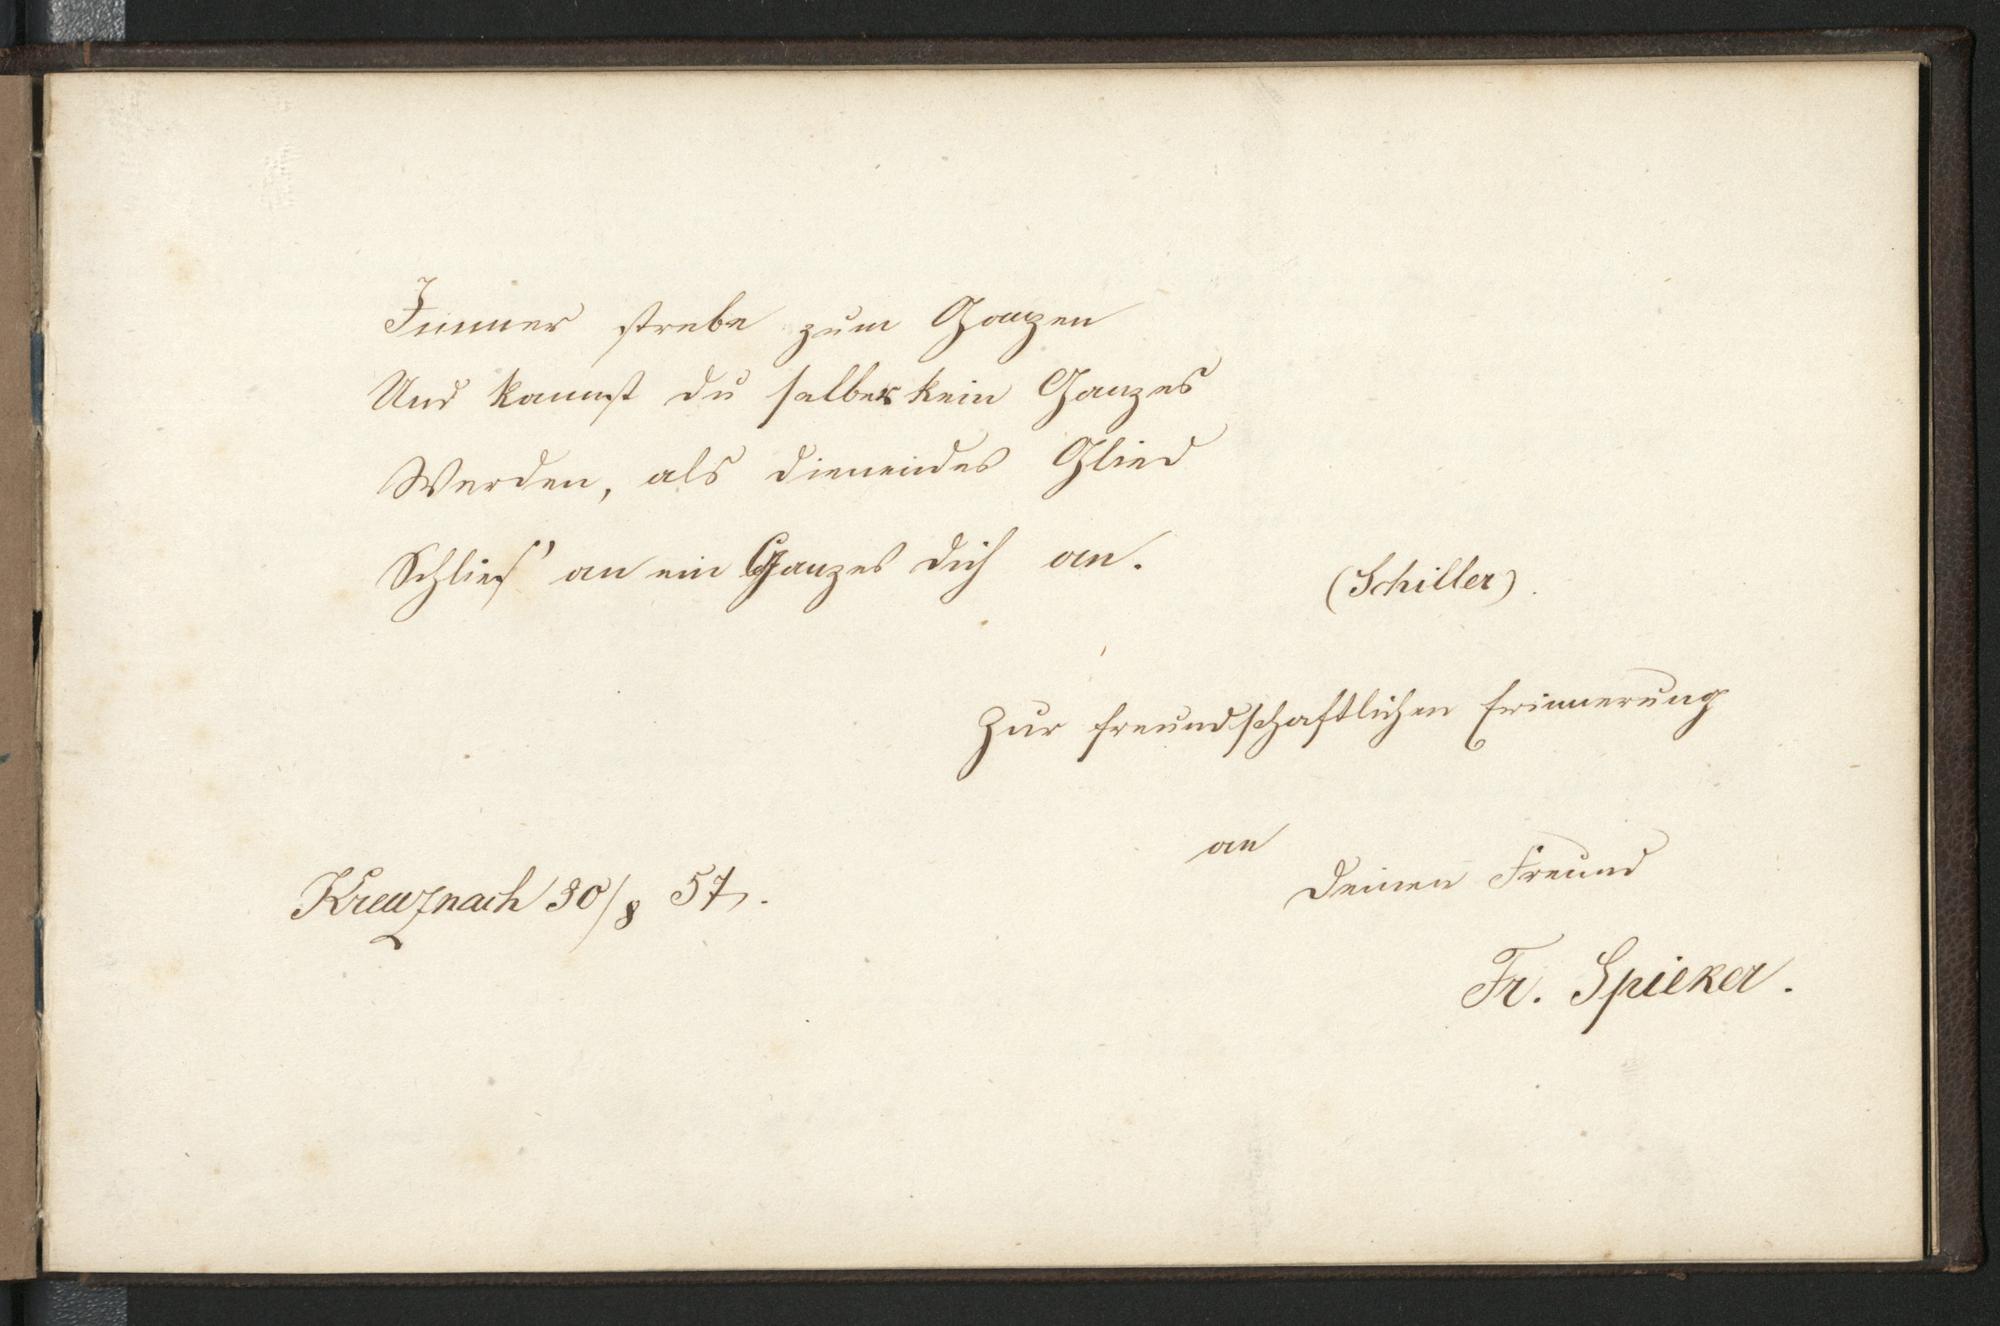 Immer strebe zum Ganzen
Und kannst du selber kein Ganzes
Werden, als dienendes Glied
Schließ' an ein Ganzes dich an.
(Schiller).
Zur freundschaftlichen Erinnerung
an
Deinen Freund
Kreuznach 30/8 57.
Fr. Spieker.